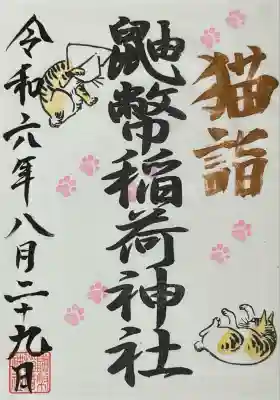 猫詣
鼬幣稲荷神社
令和六年八月二十九日